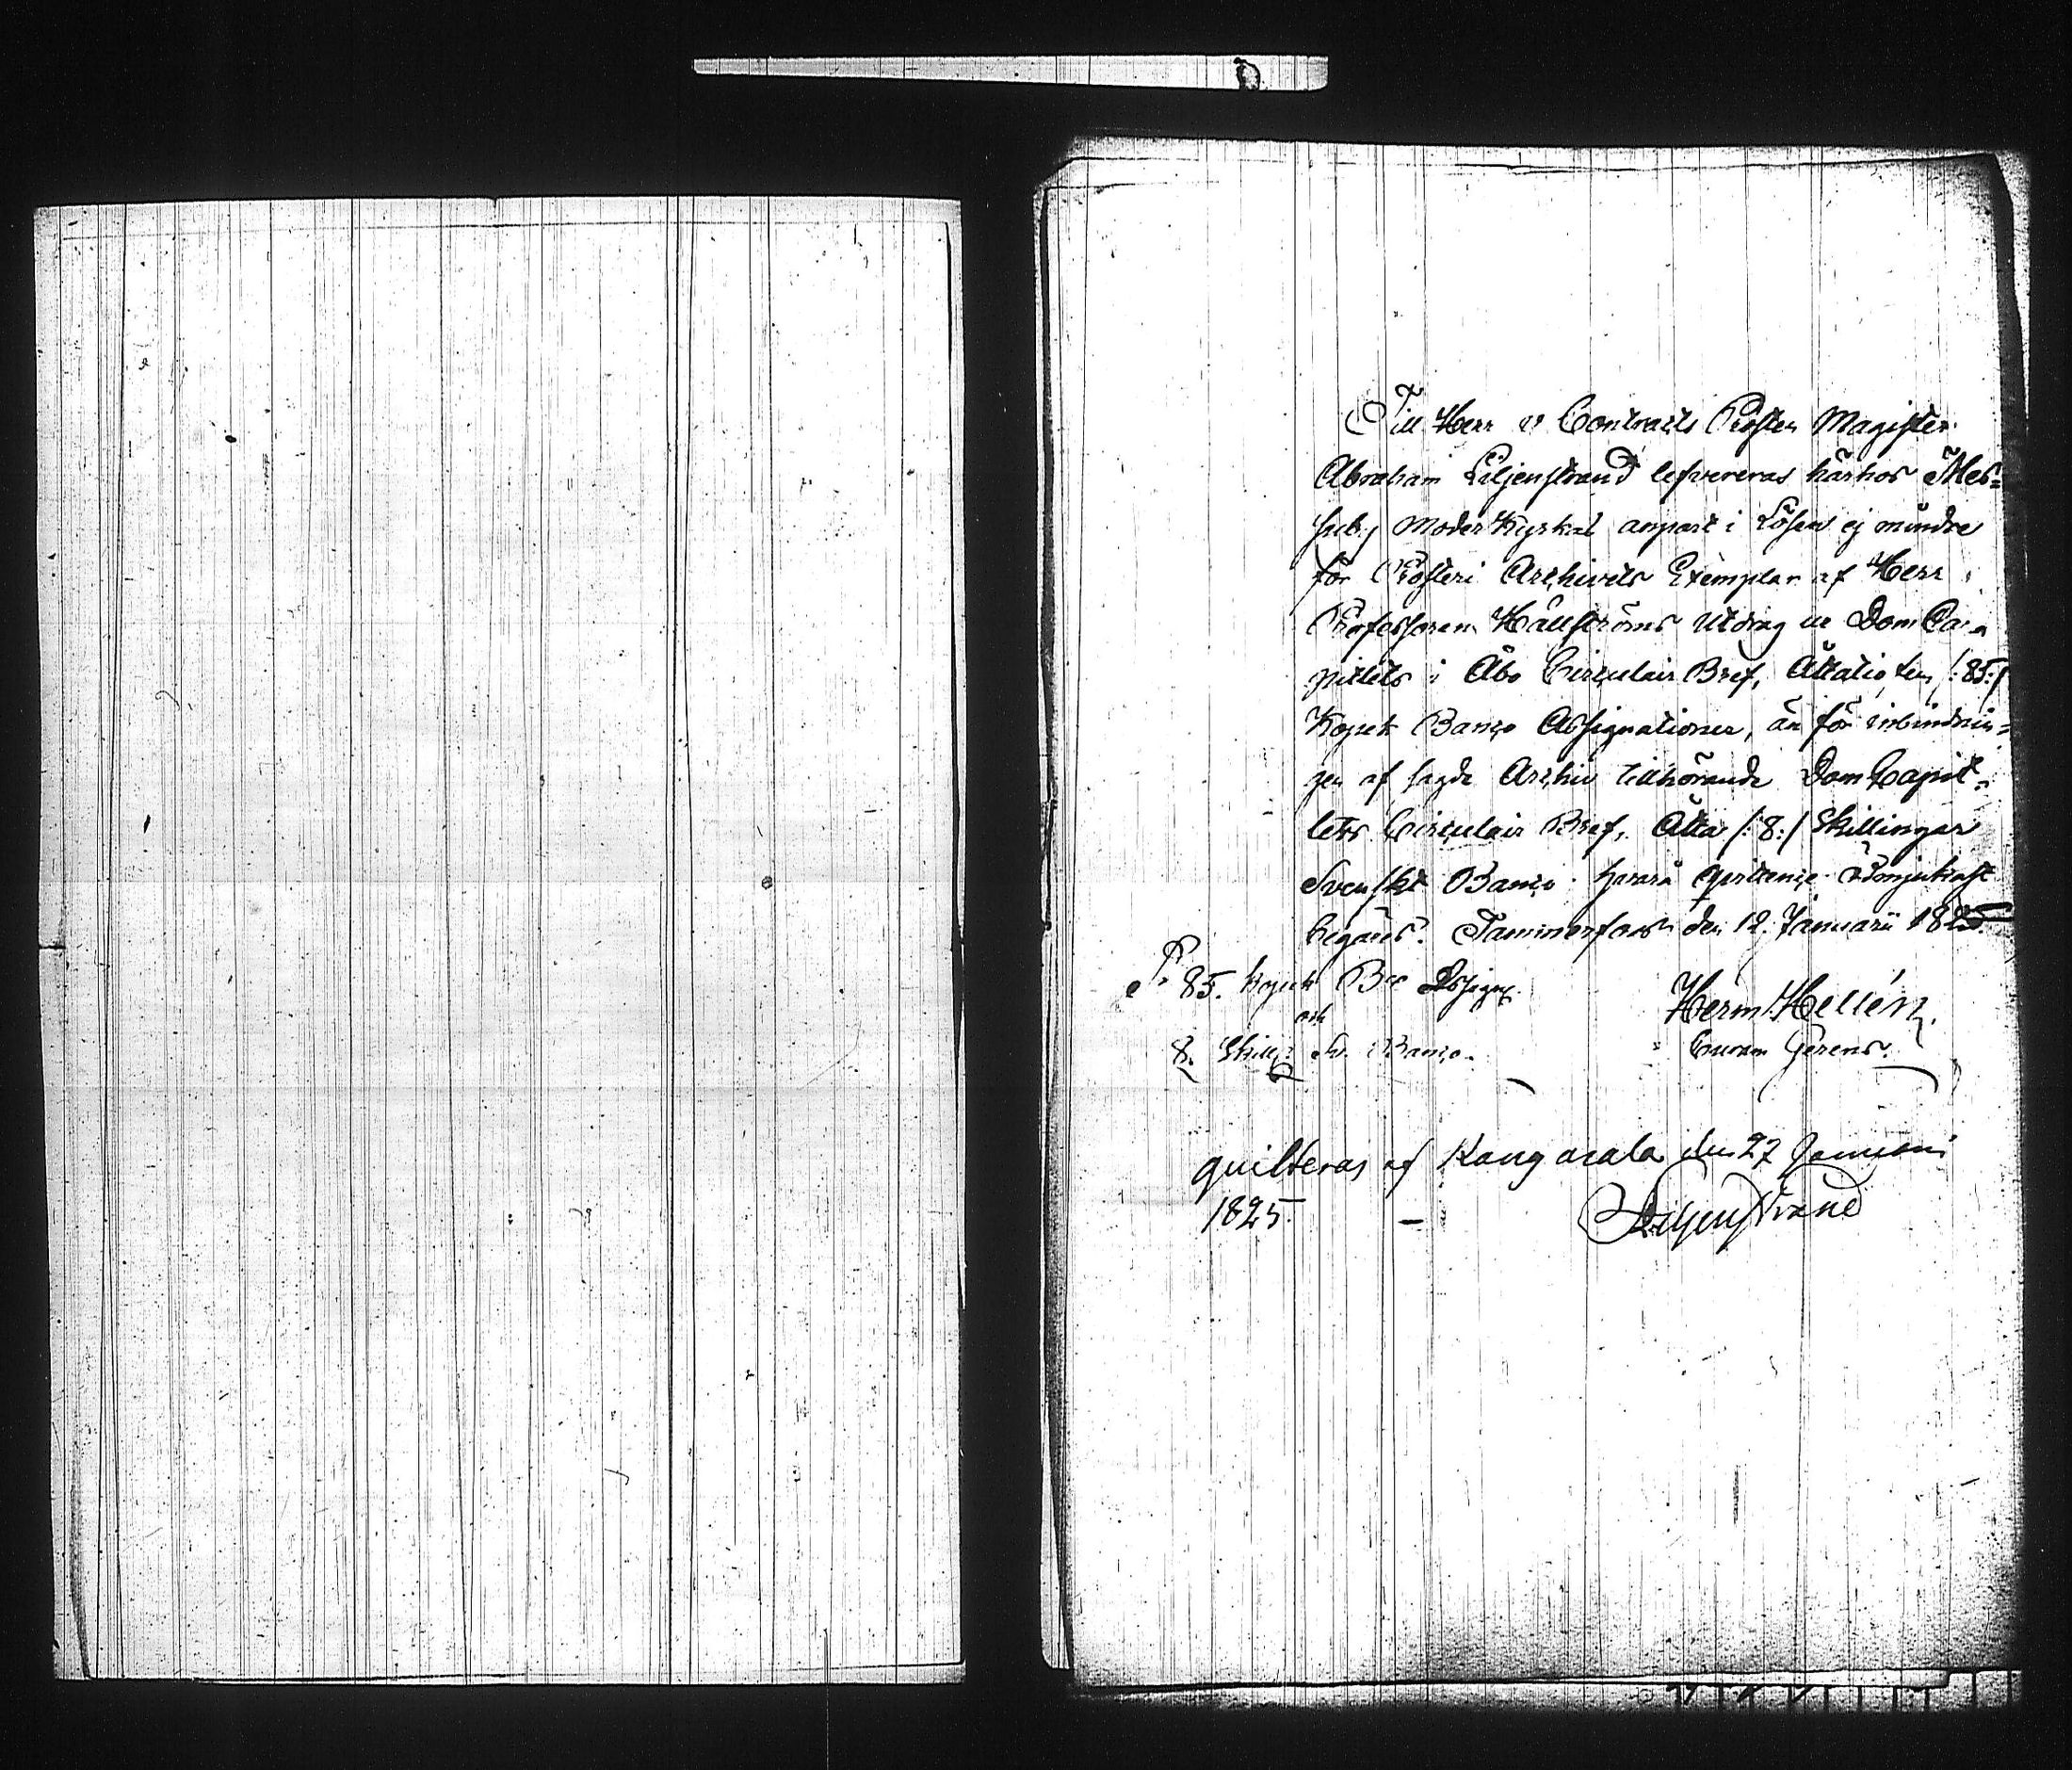 Till Herr v Contracts Prosten Magister
Abraham Liljenstrand lefvereras härhos Mes-
suby Moder Kyrkas anpart i Lösen ej mindre
för Prosteri Archivets Exemplar af Herr
Professoren Hällströms Utdrag ur Dom Ca-
pitlets i Åbo Circulair Bref, Åttatio fem /:85:/
Kopek Banco Assignationer, än för inbindnin-
gen af sagde Archiv tillhörande Dom Capit-
lets Circulair Bref, Åtta /:8:/ Skillingar
Svenskt Banco hvarå qvittence ödmjukast
begäres. Tammerfors den 12. Januarii 1825.
85. Kopek Bco Assign.
och
8. Skill. Sv. Banco.
Herm: Hellén
Curam Gerens.
quitteras af Kangasala den 27 Januarii
1825. — Liljenstrand